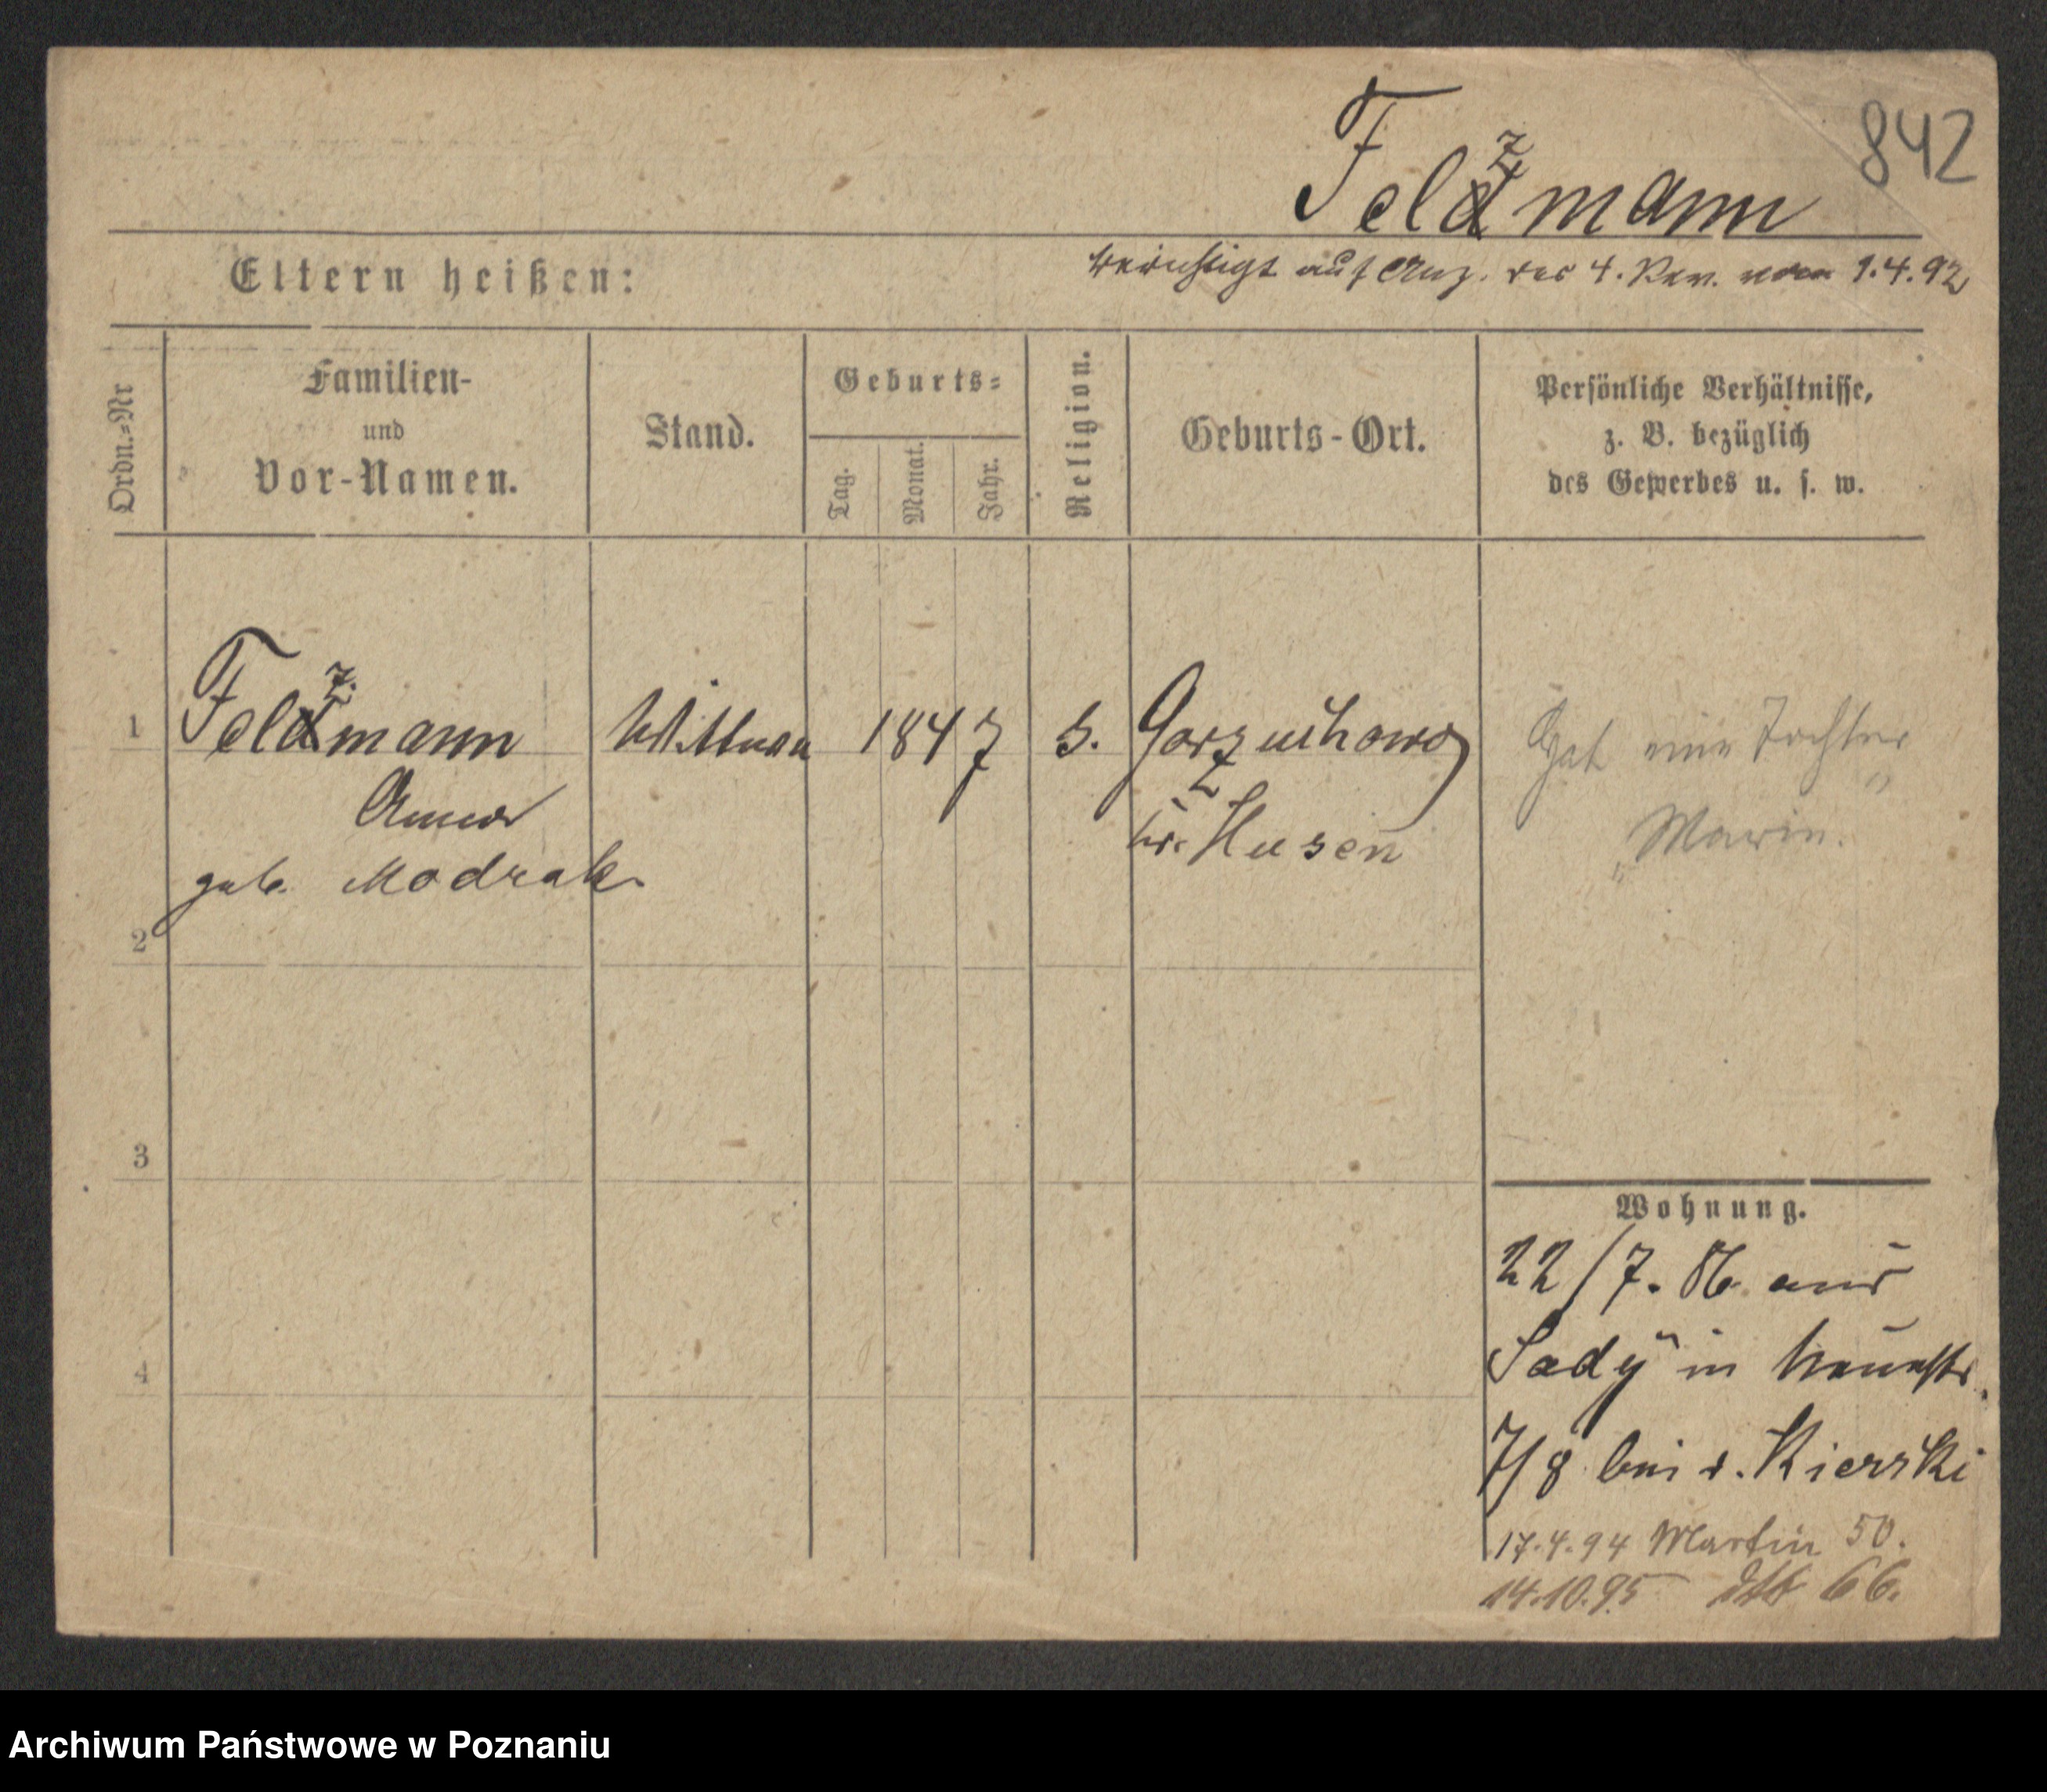 842
Felzmann
berichtigt auf Anz. des 4. Rev. vom 1.4.92
Eltern heißen:
Ordn.=Nr
Familien-
und
Vor-Namen.
Stand.
Geburts=
Tag.
Monat.
Jahr.
Religion.
Geburts-Ort.
Persönliche Verhältnisse,
z. B. bezüglich
des Gewerbes u. s. w.
1 Felzmann Wittwe 1847 Gorzuchowo Hat eine Tochter
Anna
geb. Modrak
br. Kusen
"Marie."
2
3
4
Wohnung.
22/7. 86 aus
Sady in Neuestr.
7/8 bei v. Kierski
17.4.94 Martin 50.
14.10.95 dto 66.
Archiwum Państwowe w Poznaniu